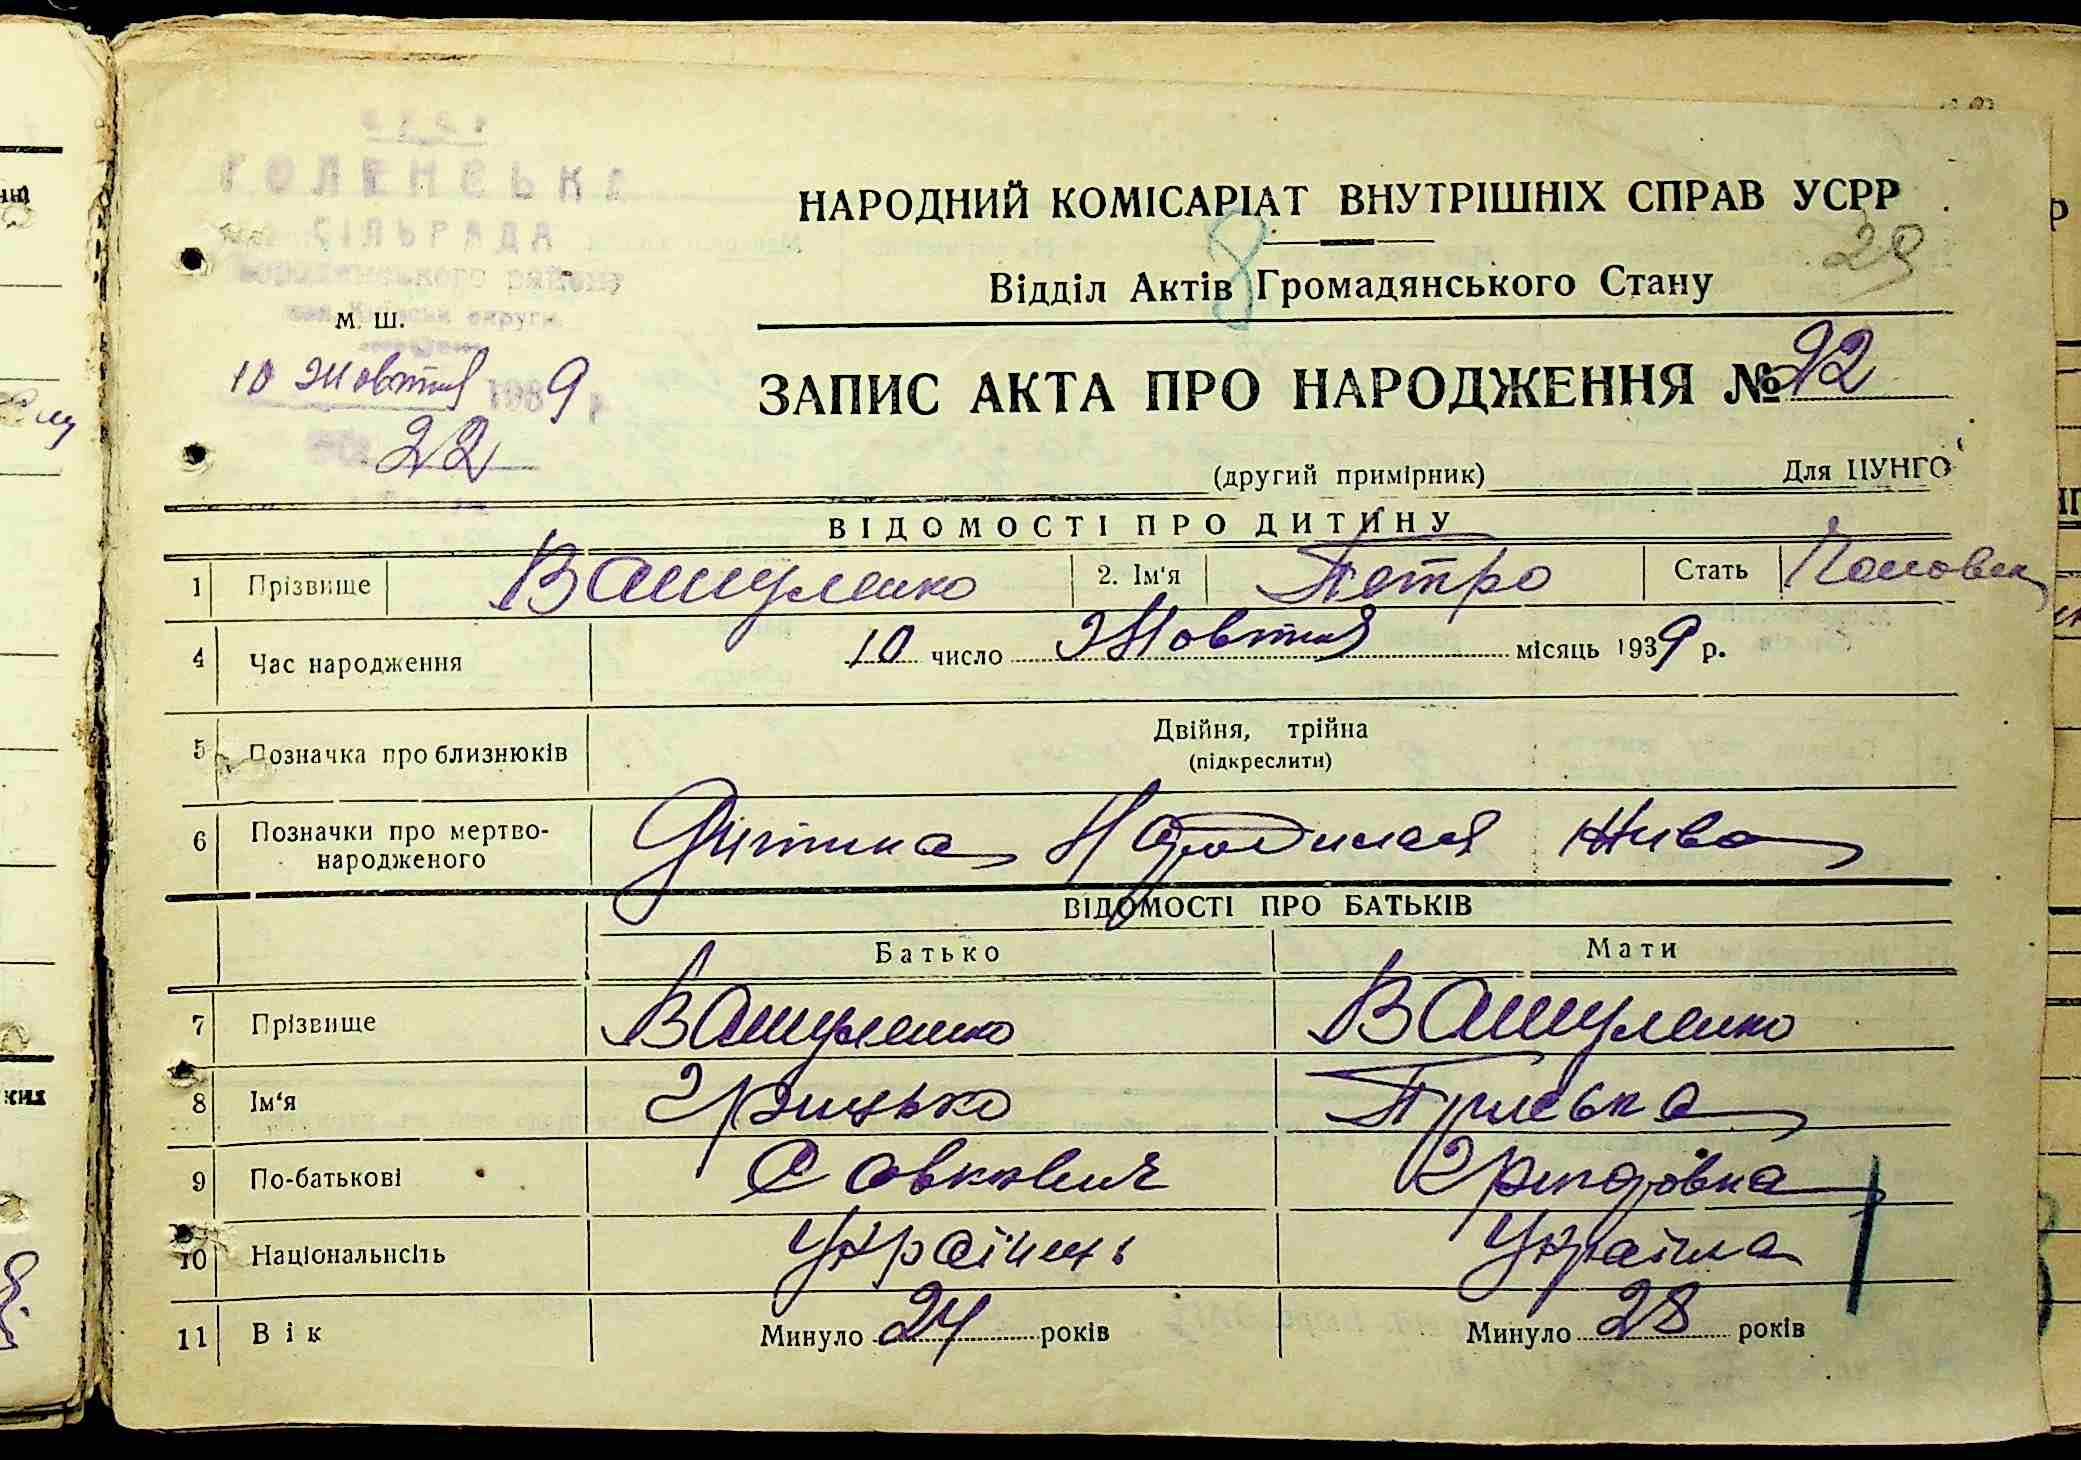 СІЛЬРАДА
району
НАРОДНИЙ КОМІСАРІАТ ВНУТРІШНІХ СПРАВ УСРР
29
8
Відділ Актів Громадянського Стану
М. Ш.
10 Жовтня 1939 р
22
ЗАПИС АКТА ПРО НАРОДЖЕННЯ № 22
(другий примірник) Для ЦУНГО
ВІДОМОСТІ ПРО ДИТИНУ
1 Прізвище Вашуленко 2. Ім'я Петро Стать
4 Час народження 10 число Жовтня місяць 1939 р.
5 Позначка про близнюків Двійня, трійна
(підкреслити)
6 Позначки про мертво-
народженого Дитина Народилася жива
ВІДОМОСТІ ПРО БАТЬКІВ
Батько Мати
7 Прізвище Вашуленко Вашуленко
8 Ім'я Грицько
9 По-батькові Савкович Григоровна
10 Національність Українець Україна
11 Вік Минуло 24 років Минуло 28 років